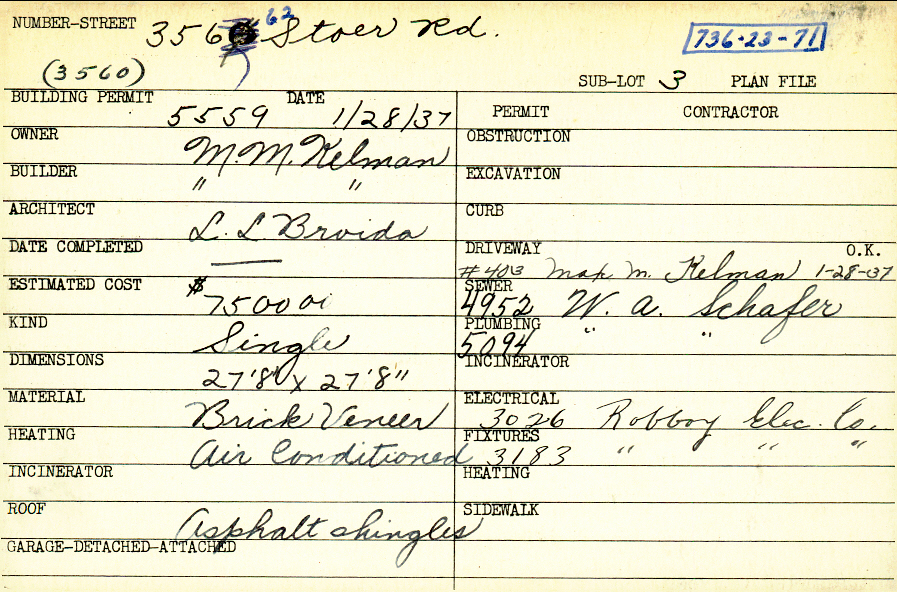 NUMBER-STREET 3560 62 Stoer Rd.
736-23-71
(3560)
SUB-LOT 3 PLAN FILE
BUILDING PERMIT 5559 DATE 1/28/37
PERMIT CONTRACTOR
OWNER M. M. Kelman
OBSTRUCTION
BUILDER " "
EXCAVATION
ARCHITECT L. L. Broida
CURB
DATE COMPLETED —
DRIVEWAY O.K.
#403 Max M. Kelman 1-28-37
ESTIMATED COST $7500
SEWER
4952 W. A. Schafer
KIND Single
PLUMBING
5094 " "
DIMENSIONS 27'8" x 27'8"
INCINERATOR
MATERIAL Brick Veneer
ELECTRICAL
3026 Robboy Elec. Co.
HEATING Air Conditioned
FIXTURES
3183 " " "
INCINERATOR
HEATING
ROOF Asphalt shingles
SIDEWALK
GARAGE-DETACHED-ATTACHED